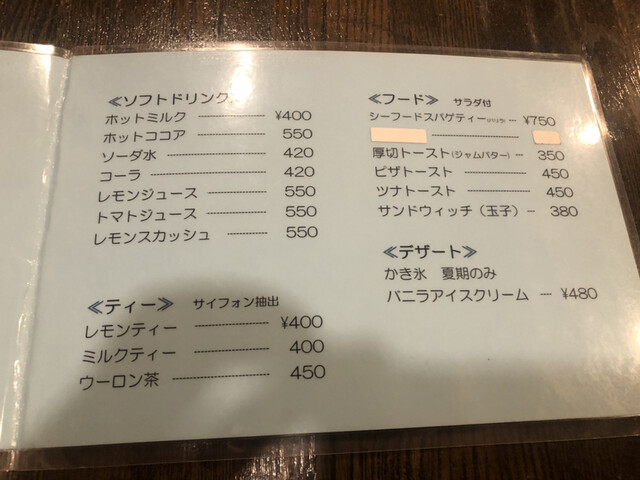 ≪ソフトドリンク≫
ホットミルク ¥400
ホットココア 550
ソーダ水 420
コーラ 420
レモンジュース 550
トマトジュース 550
レモンスカッシュ 550
≪ティー≫ サイフォン抽出
レモンティー ¥400
ミルクティー 400
ウーロン茶 450
≪フード≫ サラダ付
シーフードスパゲティー ¥750
厚切トースト(ジャムバター) 350
ピザトースト 450
ツナトースト 450
サンドウィッチ(玉子) 380
≪デザート≫
かき氷 夏期のみ
バニラアイスクリーム ¥480